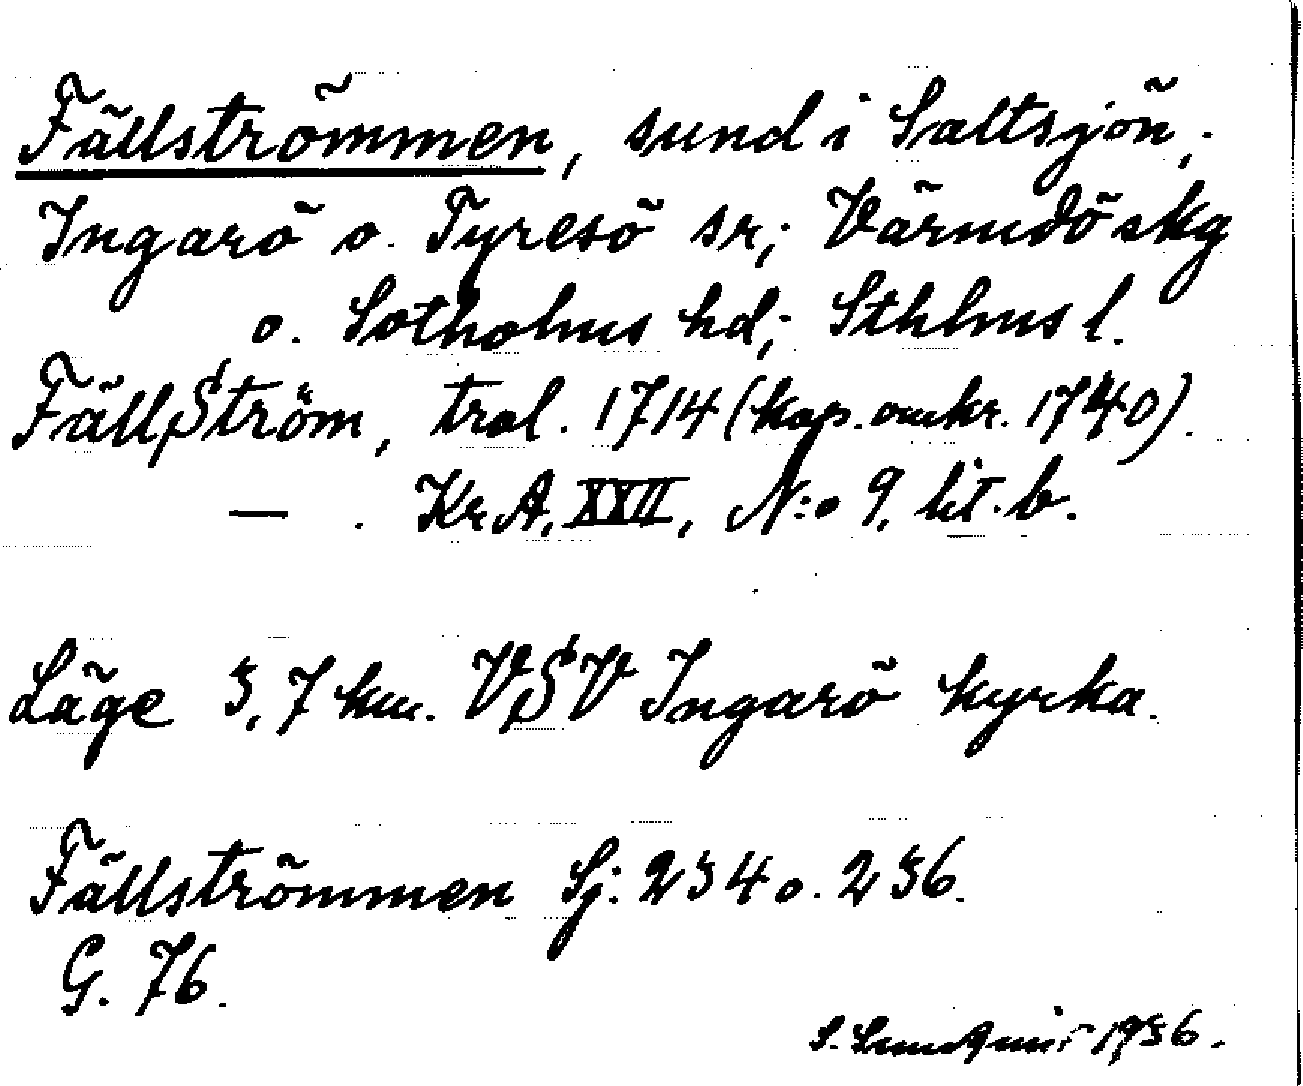 Fällströmmen, sund i Saltsjön;
Ingarö o. Tyresö sr; Värmdö skg
o. Sotholms hd; Sthlms l.
FällStröm, tral. 1714 (kop. omkr. 1740).
— . Kr. A, XXII, N:o 9, lit. b.
Läge 5,7 km. VSV Ingarö kyrka.
Fällströmmen Sj: 254 o. 256.
G. 76.
S. 1956.